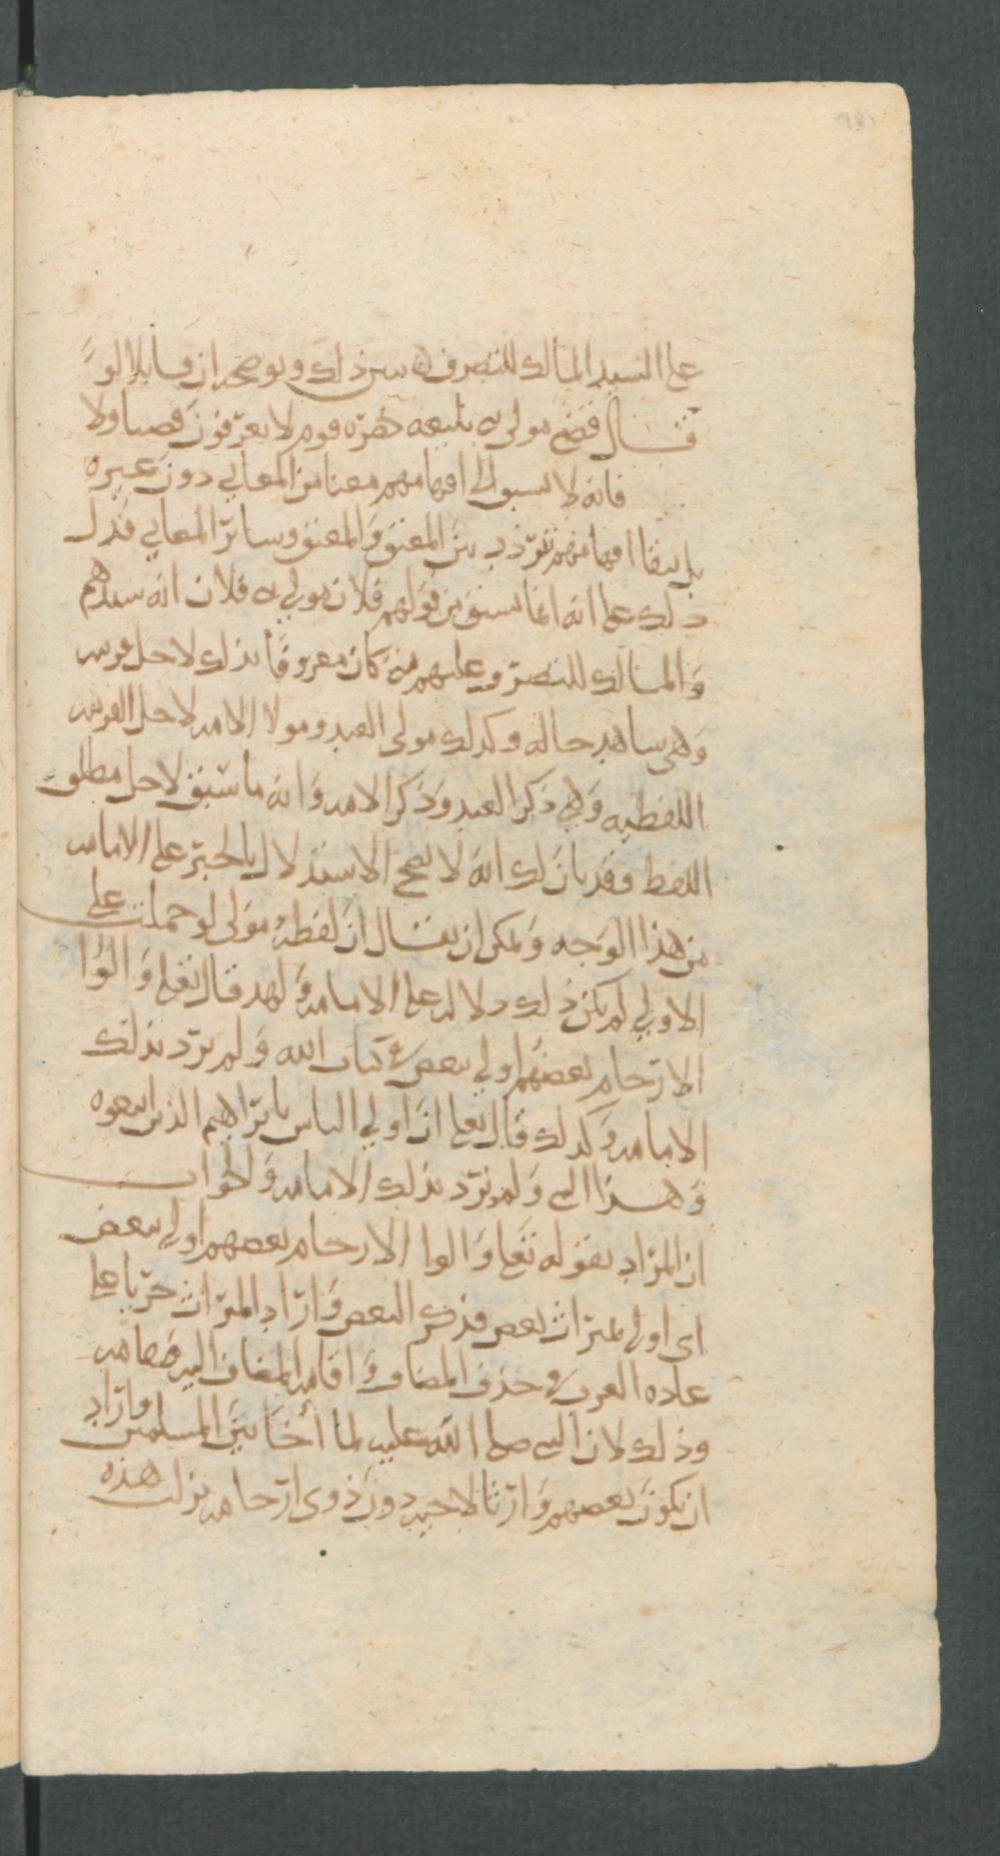 على السيد المالك للتصرف يبين ذلك ويوضحه ان قايلا لو
قال فضح مولى به بليعه دهره قوم لا يعرفون قصيا ولا
فانه لا يسبق الى افهامهم معنا من المعاني دون غيره
بل يبقا افهامهم تتردد بين المعتق والمعتق وساير المعاني فدل
ذلك على انه انما يسبق من قولهم فلان مولى بني فلان انه سيدهم
والمالك للتصرف عليهم من كان معروفا بذلك لاجل قرينه
وهي شاهد حاله وكذلك مولى العبد ومولا الامه لاجل القرينه
اللفظيه وهي ذكر العبد وذكر الامه وانه ما سبق لاجل مطلق
اللفظ وقد بان لك انه لا يصح الاستدلال بالخبر على الامامه
من هذا الوجه ويمكن ان يقال ان لفظة مولى لو حملت على
الاولى لم يكن ذلك دلالة على الامامه ولهذا قال تعلى واولوا
الارحام بعضهم اولى ببعض في كتاب الله ولم يرد بذلك
الامامه وكذلك قال تعلى ان اولى الناس بابراهيم الذين اتبعوه
وهذا النبي ولم يرد بذلك الامامه والجواب
ان المراد بقوله تعلى واولوا الارحام بعضهم اولى ببعض
اى اولى بميراث بعض فذكر البعض واراد الميراث جريا على
عادة العرب في حذف المضاف واقامة المضاف اليه مقامه
وذلك لان النبي صلى الله عليه لما أخا بين المسلمين واراد
ان يكون بعضهم وارثا لاخيه دون ذوى ارحامه نزلت هذه